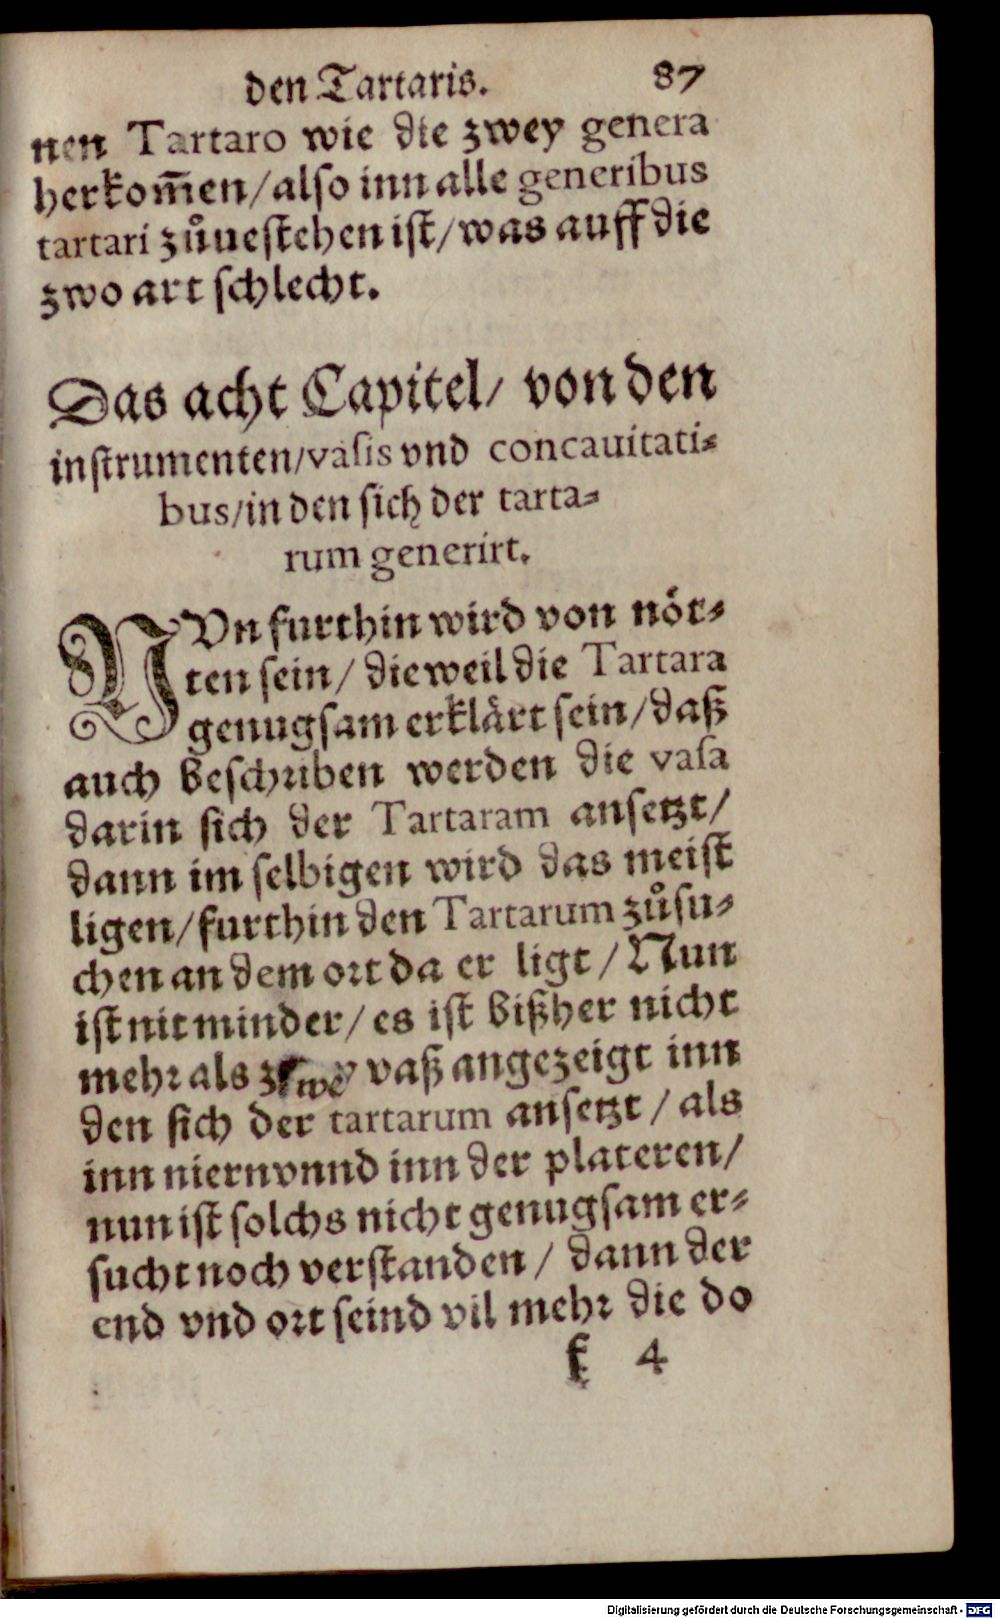 den Tartaris. 87
nen Tartaro wie die zwey genera
herkom̃en/also inn alle generibus
tartari zůuestehen ist/was auff die
zwo art schlecht.
Das acht Capitel/ von den
instrumenten/vasis vnd concauitati-
bus/in den sich der tarta-
rum generirt.
NVn furthin wird von nöt-
ten sein/ dieweil die Tartara
genugsam erklärt sein/daß
auch beschriben werden die vasa
darin sich der Tartaram ansetzt/
dann im selbigen wird das meist
ligen/furthin den Tartarum zůsu-
chen an dem ort da er ligt/Nun
ist nit minder/es ist bißher nicht
mehr als zwey vaß angezeigt inn
den sich der tartarum ansetzt/als
inn niern vnnd inn der plateren/
nun ist solchs nicht genugsam er-
sucht noch verstanden/ dann der
end vnd ort seind vil mehr die do
k 4
Digitalisierung gefördert durch die Deutsche Forschungsgemeinschaft - DFG